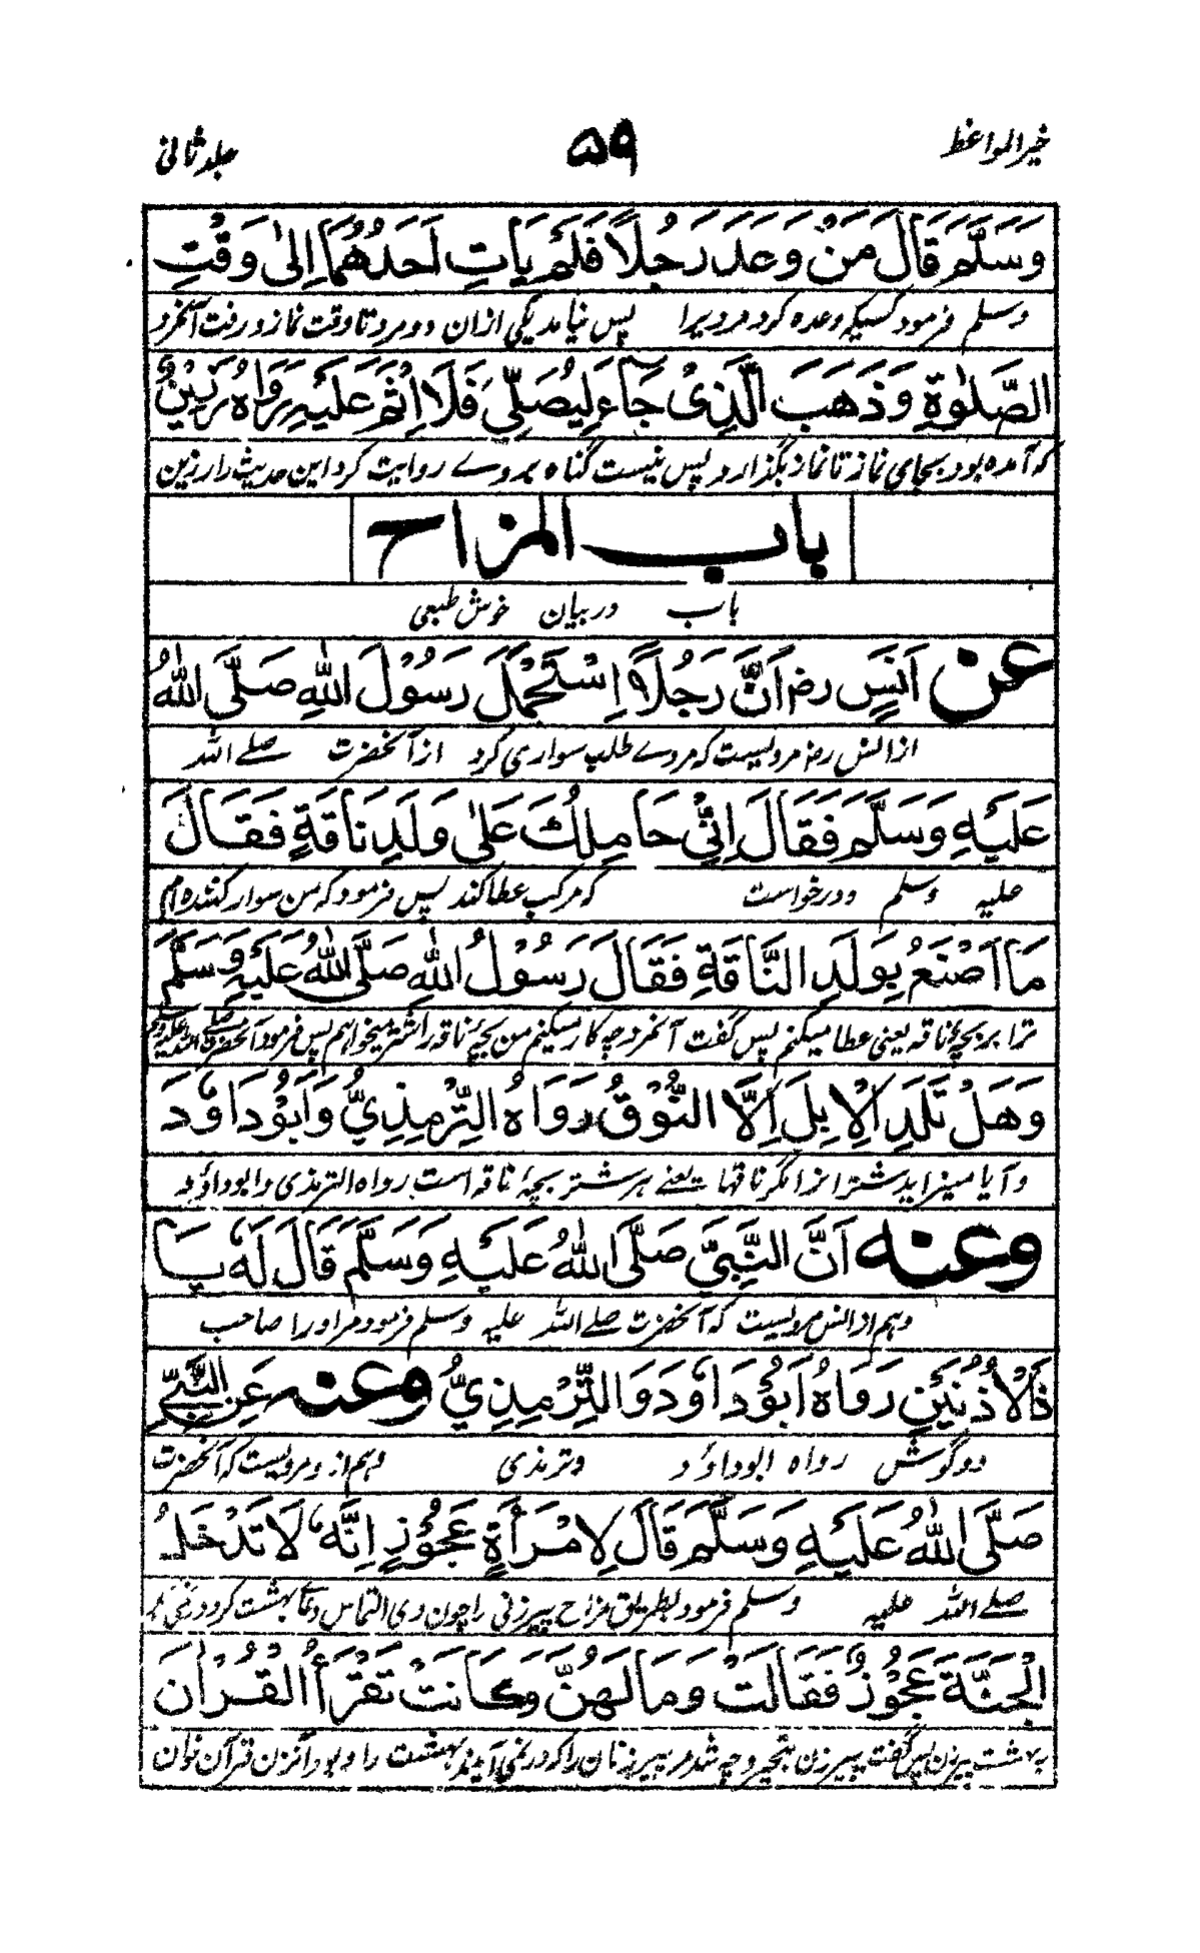 خیر المواعظ ۵۹ جلد ثانی
وَسَلَّمَ قَالَ مَنْ وَعَدَ رَجُلًا فَلَمْ يَاتِ اَحَدُهُمَا اِلٰى وَقْتِ
وسلم فرمود کسیکه وعده کرد مردیرا پس نیامد یکی ازان دو مرد تا وقت نماز و رفت آنمرد
الصَّلٰوةِ وَذَهَبَ الَّذِىْ جَآءَ لِيُصَلِّيَ فَلَا اِثْمَ عَلَيْهِ رَوَاهُ رَزِيْنٌ
که آمده بود بجای نماز تا نماز بگذارد پس نیست گناه بروے روایت کرد این حدیث را رزین
باب المزاح
باب در بیان خوش طبعی
عن اَنَسٍ رض اَنَّ رَجُلًا اِسْتَحْمَلَ رَسُوْلَ اللّٰهِ صَلَّى اللّٰهُ
از انس رض مرویست که مردے طلب سواری کرد از آنحضرت صلے اللہ
عَلَيْهِ وَسَلَّمَ فَقَالَ اِنِّيْ حَامِلُكَ عَلٰى وَلَدِ نَاقَةٍ فَقَالَ
علیه وسلم و درخواست که مرکب عطا کند پس فرمود که من سوار کننده ام
مَا اَصْنَعُ بِوَلَدِ النَّاقَةِ فَقَالَ رَسُوْلُ اللّٰهِ صَلَّى اللّٰهُ عَلَيْهِ وَسَلَّمَ
ترا بر بچۂ ناقه یعنی عطا میکنم پس گفت آنمرد چه کار میکنم من بچۂ ناقه را شتر میخواهم پس فرمود آنحضرت صلے اللہ علیه وسلم
وَهَلْ تَلَدِ الْاِبِلَ اِلَّا النُّوْقُ رَوَاهُ التِّرْمِذِيُّ وَاَبُوْدَاوٗدَ
و آیا میزاید شتر انرا مگر ناقها یعنے هر شتر بچۂ ناقه است رواه الترمذی وابوداؤد
وعنه اَنَّ النَّبِيَّ صَلَّى اللّٰهُ عَلَيْهِ وَسَلَّمَ قَالَ لَهٗ يَا
وهم از انس مرویست که آنحضرت صلے اللہ علیه وسلم فرمود مر اورا صاحب
ذَالْاُذُنَيْنِ رَوَاهُ اَبُوْدَاوٗدَ وَالتِّرْمِذِيُّ وعنه عَنِ النَّبِيِّ
دو گوش رواه ابوداؤد وترمذی وهم از و مرویست که آنحضرت
صَلَّى اللّٰهُ عَلَيْهِ وَسَلَّمَ قَالَ لِامْرَأَةٍ عَجُوْزٍ اِنَّهٗ لَا تَدْخُلُ
صلے اللہ علیه وسلم فرمود بطریق مزاح پیرزنی را چون وی التماس دعاے بهشت کرد
الْجَنَّةَ عَجُوْزٌ فَقَالَتْ وَمَا لَهُنَّ وَكَانَتْ تَقْرَأُ الْقُرْاٰنَ
به بهشت پیرزن پس گفت پیرزن و چه شد مر پیرزنان را که در نمی آیند بهشت را و بود آنزن قرآن خوان